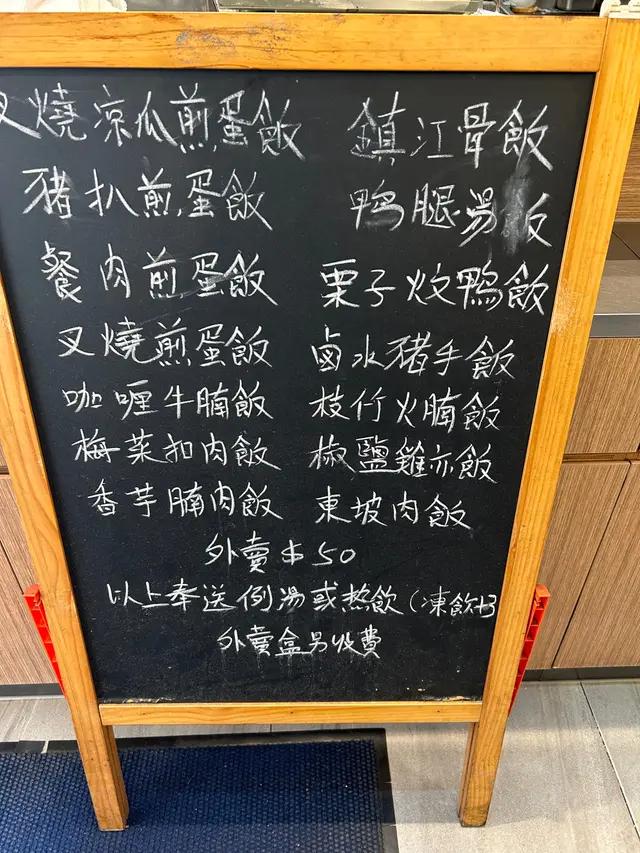 叉燒凉瓜煎蛋飯 鎮江骨飯
豬扒煎蛋飯 鴨腿湯飯
餐肉煎蛋飯 栗子炆鴨飯
叉燒煎蛋飯 鹵水豬手飯
咖喱牛腩飯 枝竹火腩飯
梅菜扣肉飯 椒鹽雞亦飯
香芋腩肉飯 東坡肉飯
外賣$50
以上奉送例湯或热飲(凍飲+3
外賣盒另收費